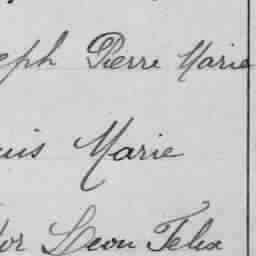 eph Pierre Marie
uis Marie
tor Leon Felix